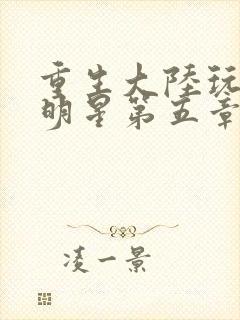 重生大陸玩
明星第五章
凌一景